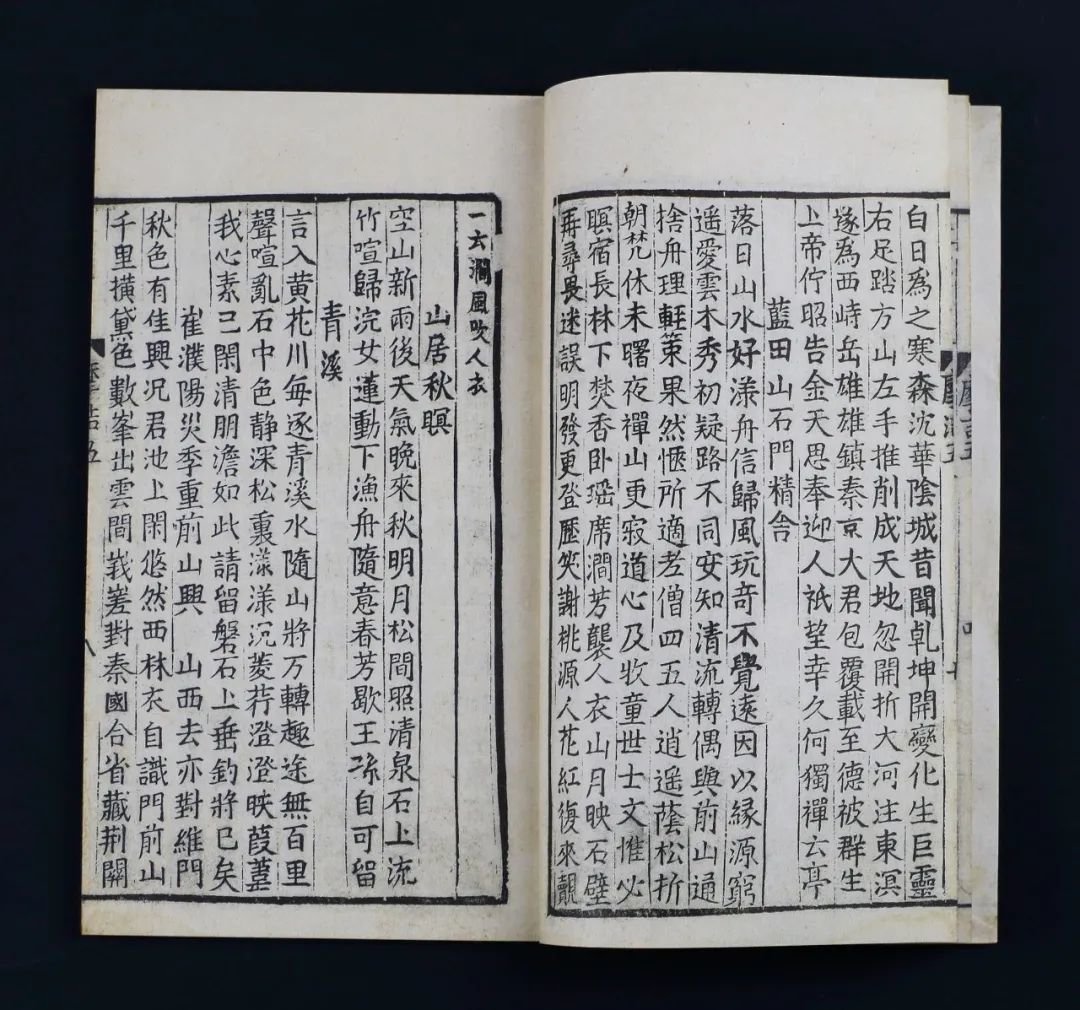 白日為之寒森沈華陰城昔聞乹坤開變化生巨靈
右足踏方山左手推削成天地忽開折大河注東溟
遂為西峙岳雄雄鎮秦京大君包覆載至德被群生
上帝佇昭告金天思奉迎人祇望幸久何獨禪云亭
藍田山石門精舍
落日山水好漾舟信歸風玩奇不覺遠因以緣源窮
遥愛雲木秀初疑路不同安知清流轉偶與前山通
捨舟理輊策果然愜所適老僧四五人逍遥蔭松折
朝梵休未曙夜禪山更寂道心及牧童世士文惟必
暝宿長林下焚香卧瑶席澗芳襲人衣山月映石壁
再尋畏迷誤明發更登歷笑謝桃源人花紅復來覿
一六澗風吹人衣
山居秋暝
空山新雨後天氣晚來秋明月松間照清泉石上流
竹喧歸浣女蓮動下漁舟隨意春芳歇王孫自可留
青溪
言入黄花川毎逐青溪水隨山將万轉趣途無百里
聲喧亂石中色静深松裏漾漾沉菱荇澄澄映葭葦
我心素已閑清朋澹如此請留磐石上垂釣將已矣
崔濮陽災季重前山興 山西去亦對維門
秋色有佳興況君池上閑悠然西林衣自識門前山
千里撗黛色數峯出雲間嵯峩對秦國合省藏荆關